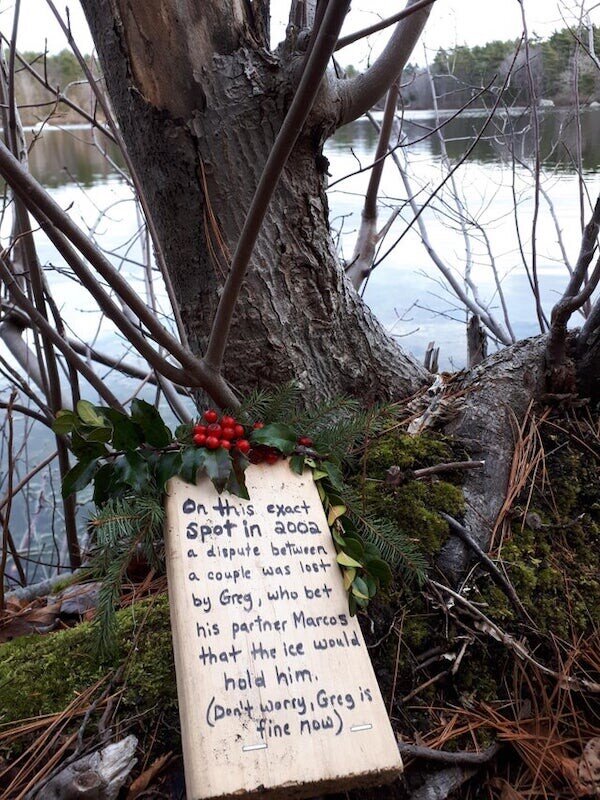 On this exact
spot in 2002
a dispute between
a couple was lost
by Greg, who bet
his partner Marcos
that the ice would
hold him.
(Don't worry, Greg is
fine now)